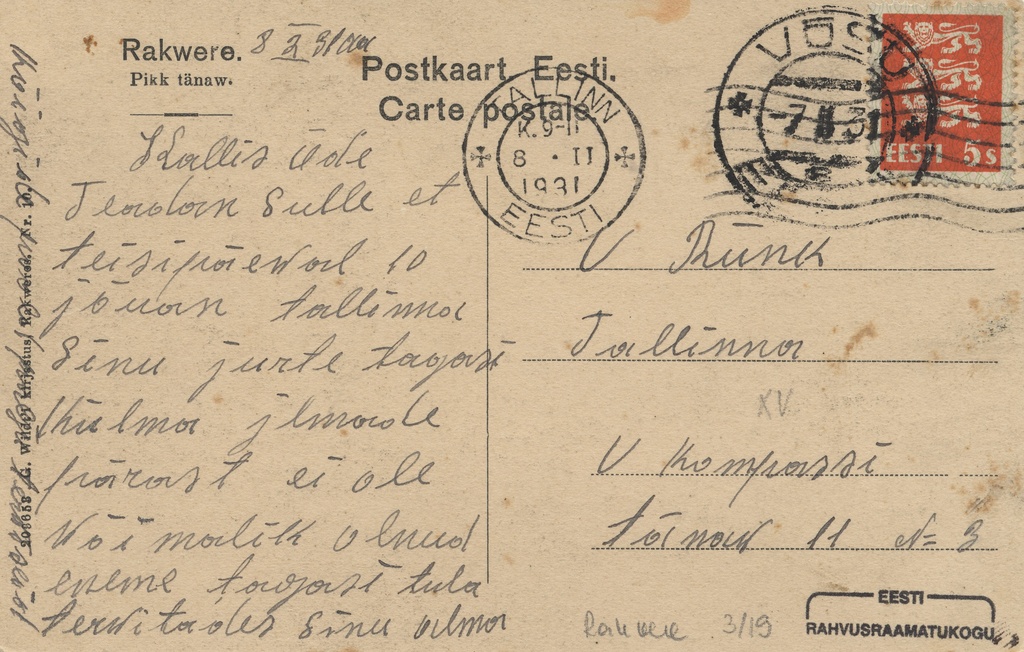 Rakwere.
Pikk tänaw.
Postkaart. Eesti.
Carte postale.
TALLINN
K. 9-11
8 · II
1931
EESTI
VÕSU
-7 II 31
EESTI 5 s
Kallis õde
Teadan Sulle et
teisipäewal 10
jõuan tallinna
Sinu jurte tagasi
Kulma jlmade
pärast ei ole
Wõimalik olnud
eneme tagasi tula
terwitades Sinu alma
V Rünk
Tallinna
XV
V Kompassi
tänaw 11 N= 3
Rakvere 3/19
EESTI
RAHVUSRAAMATUKOGU